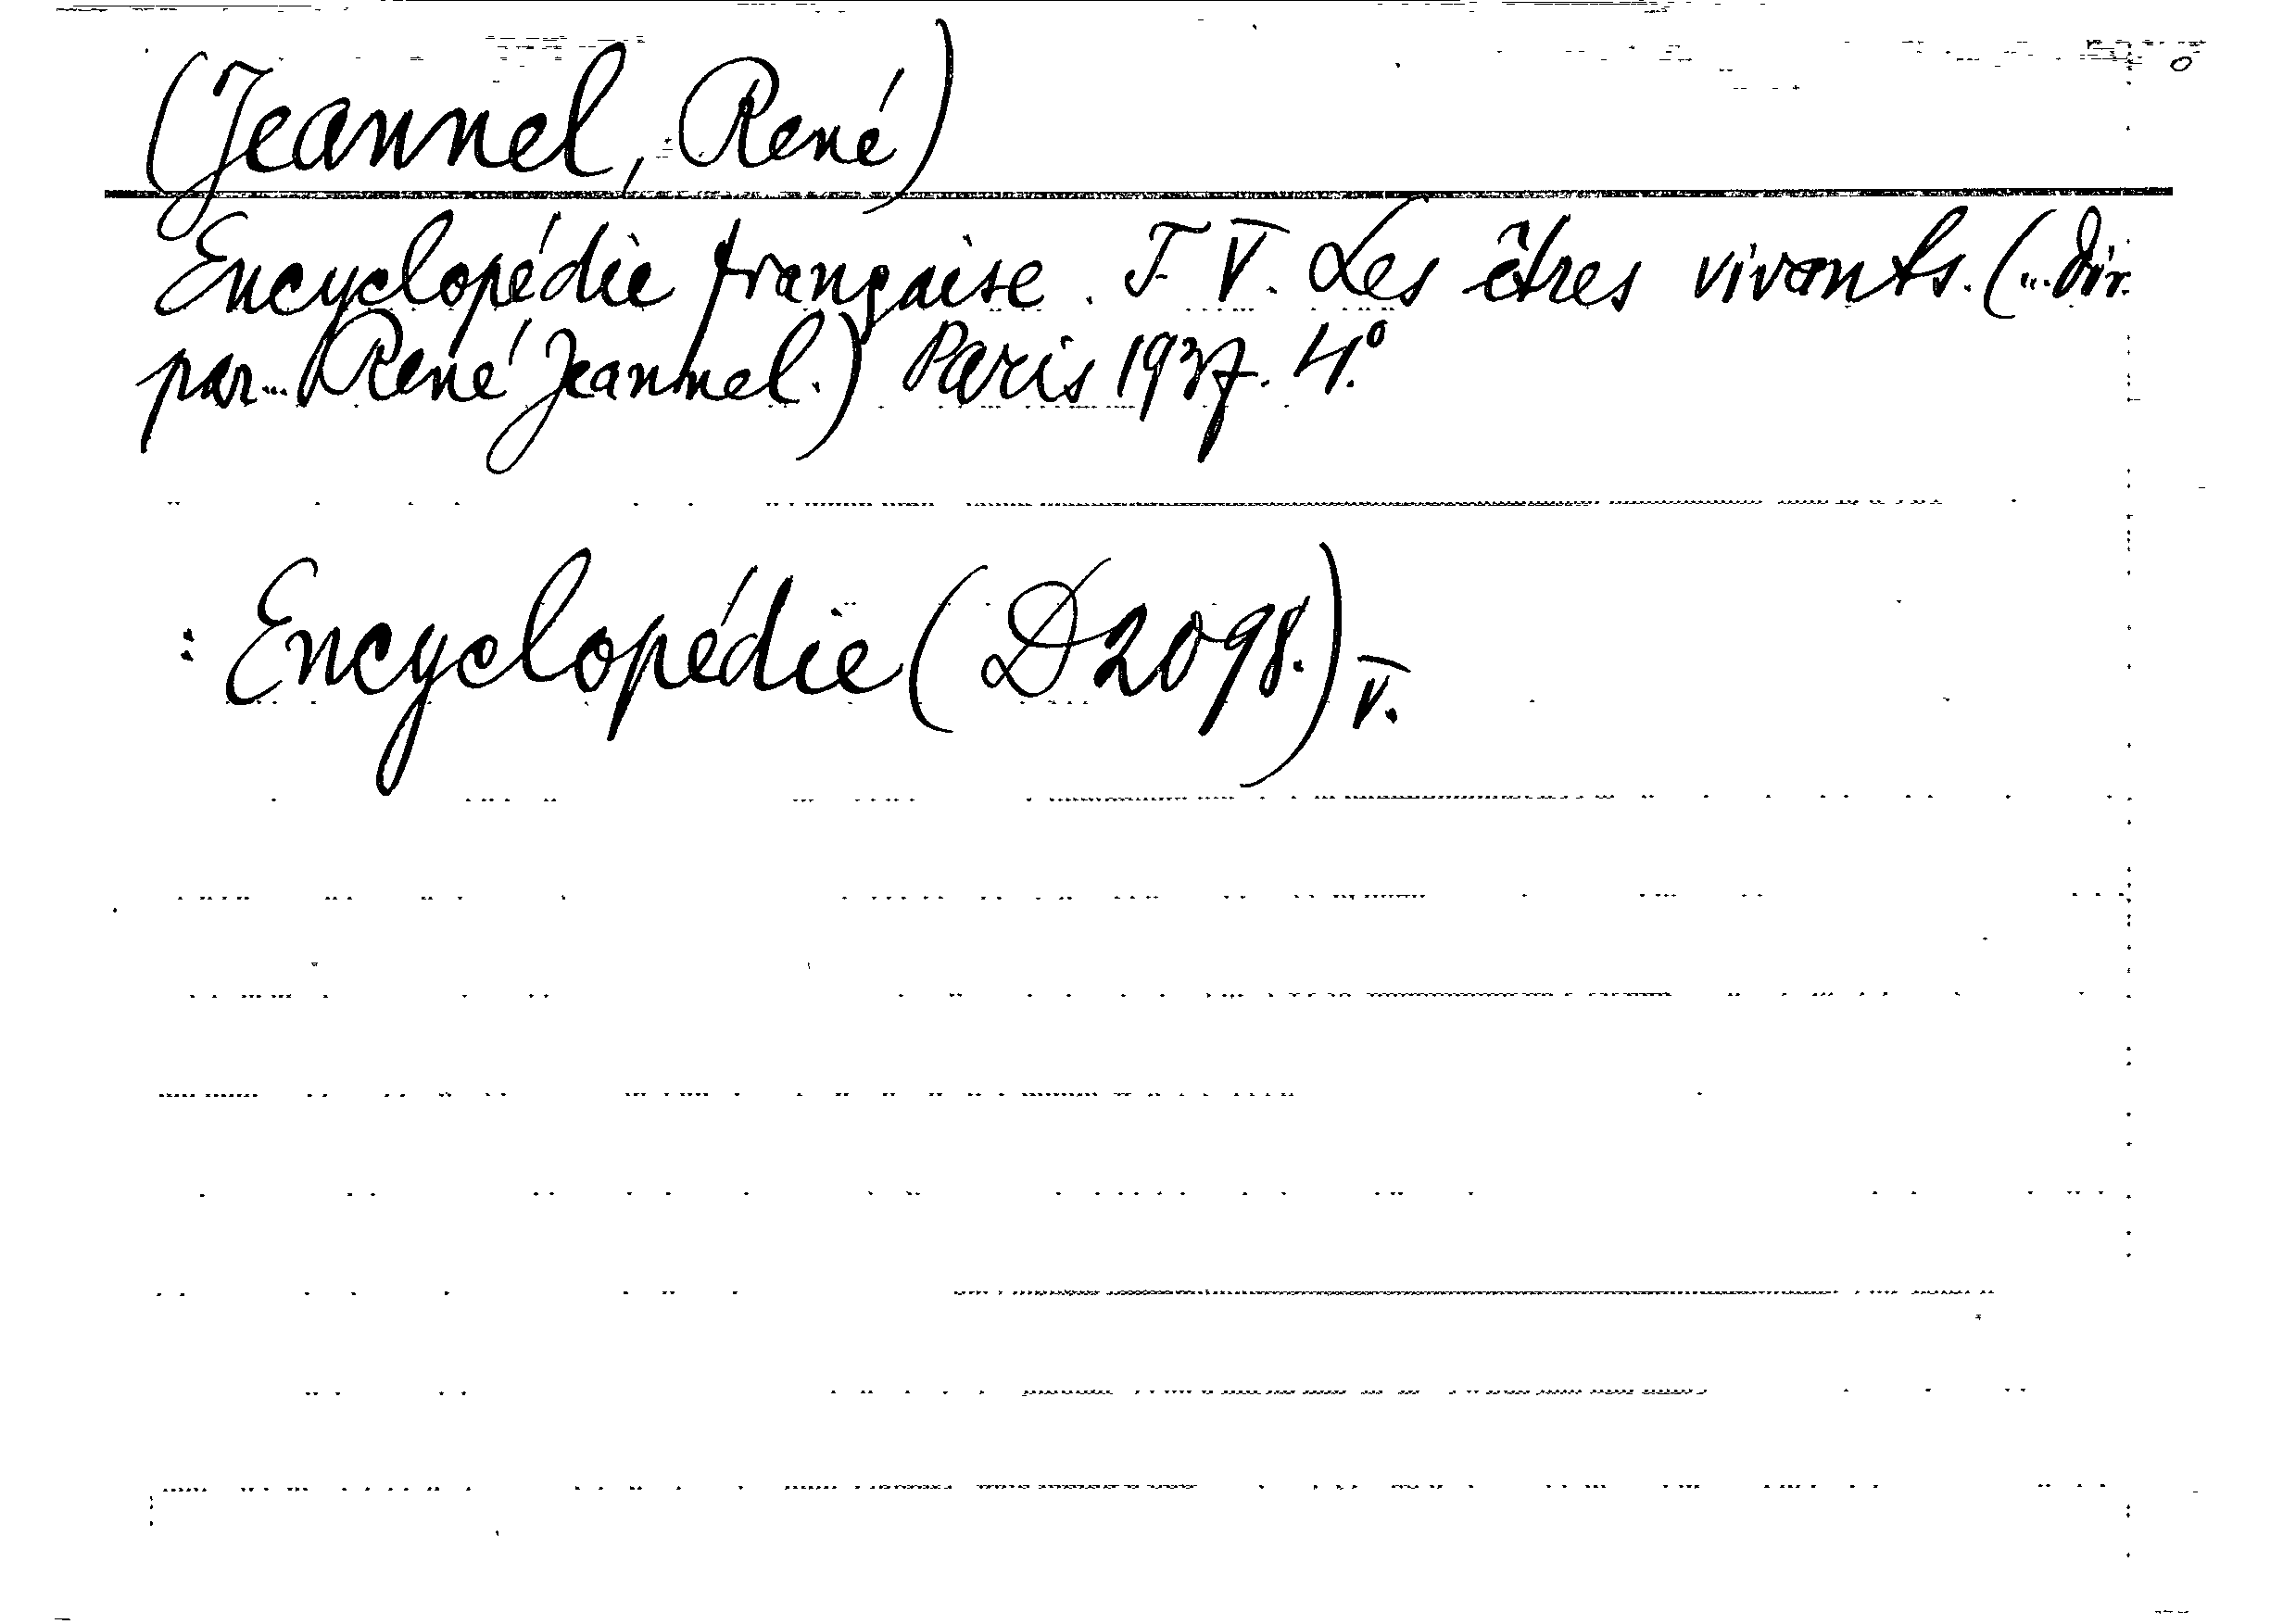 (Jeannel, René)
Encyclopédie française. T V. Les êtres vivants. (...dir.
par... René Jeannel.) Paris 1937. 4.°
: Encyclopédie (D2098.) V.